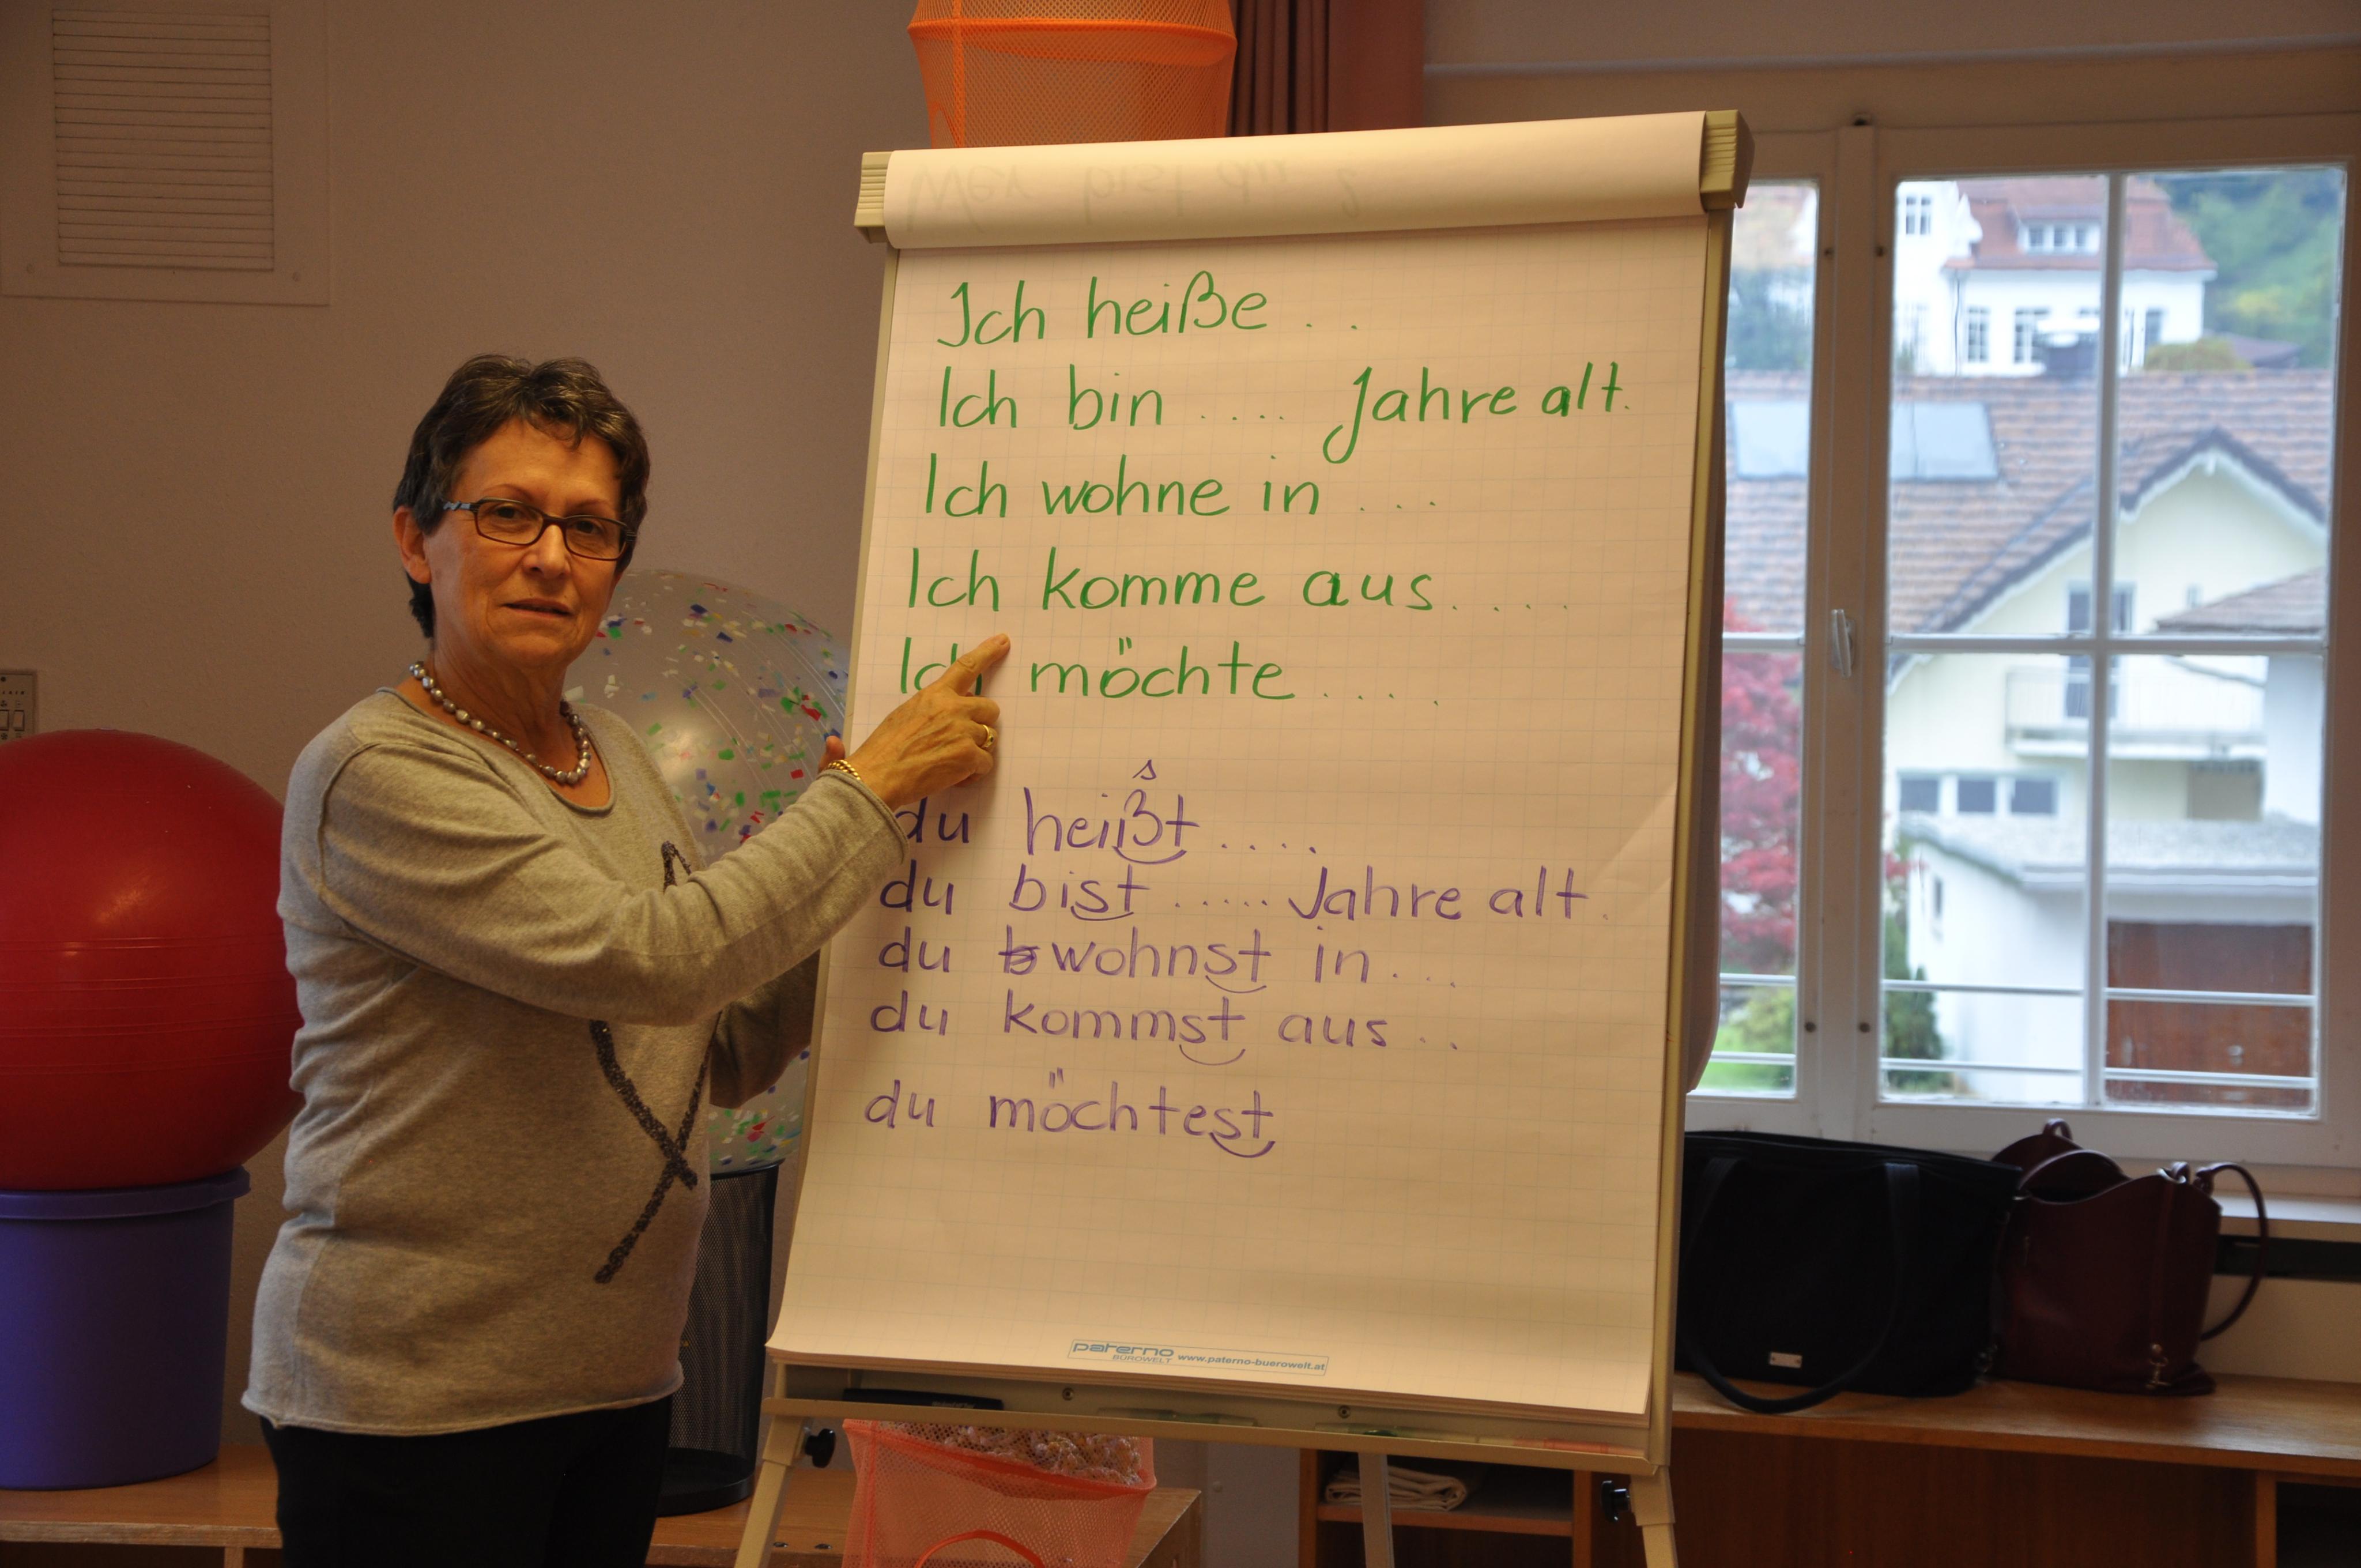 Wer bist du ?
Ich heiße . .
Ich bin . . . . Jahre alt.
Ich wohne in . . .
Ich komme aus. . . .
Ich möchte . . . .
s
du heißt . . . .
du bist . . . . . Jahre alt.
du wohnst in . . .
du kommst aus . .
du möchtest
paterno
BÜROWELT www.paterno-buerowelt.at